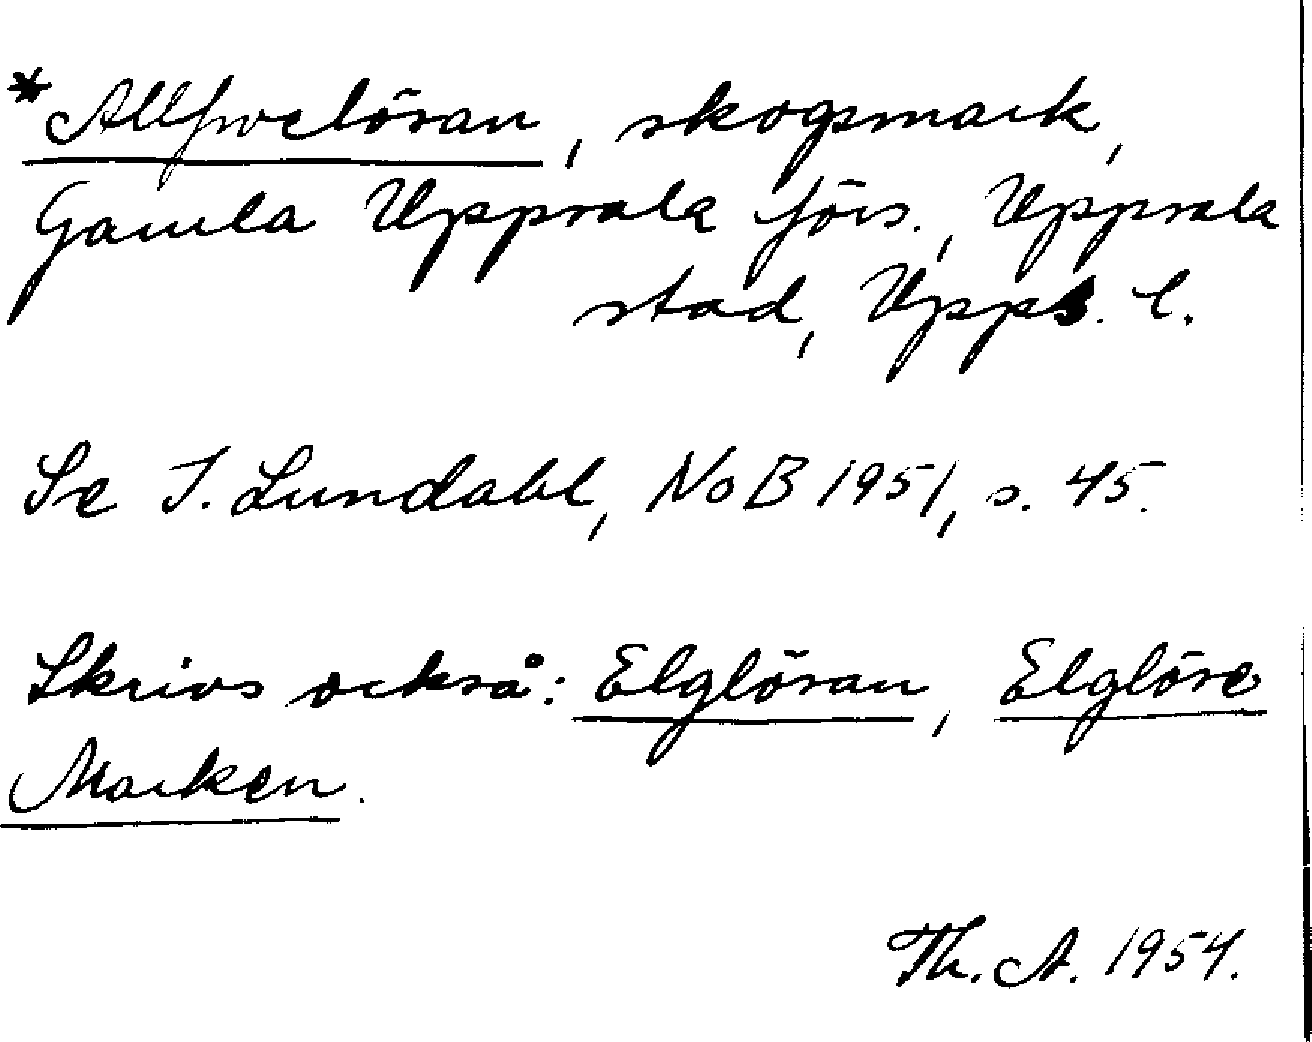 *Allfwelösan, skogsmark,
Gamla Uppsala förs., Uppsala
stad, Upps. l.
Se I. Lundahl, NoB 1951, s. 45.
Skrivs också: Elglösan, Elglöse
Marken.
Th. A. 1954.